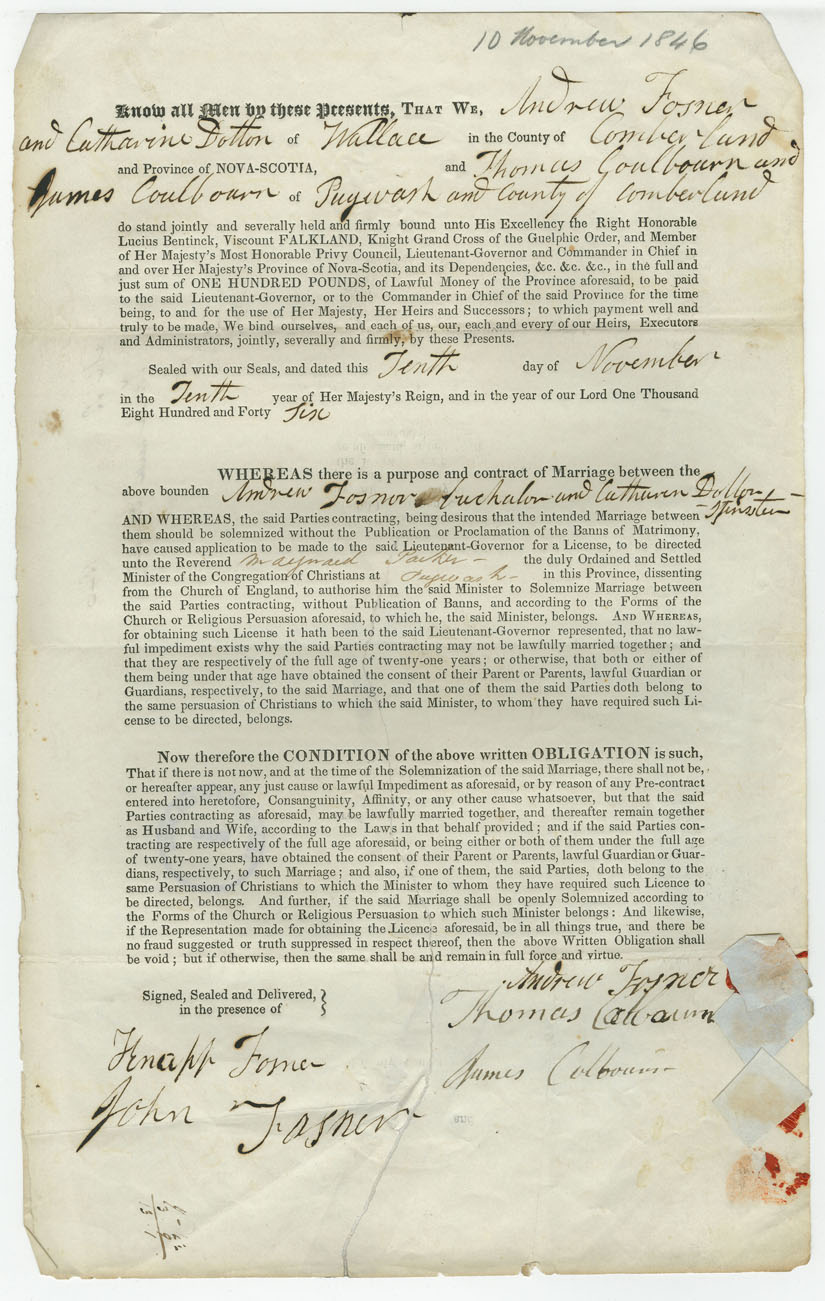 10 November 1846
Know all Men by these Presents, THAT WE, Andrew Fosner
and Catharine Dotton of Wallace in the County of Comberland
and Province of NOVA-SCOTIA, and Thomas Coulbourn and
James Coulbourn of Pugwash and County of Comberland
do stand jointly and severally held and firmly bound unto His Excellency the Right Honorable
Lucius Bentinck, Viscount FALKLAND, Knight Grand Cross of the Guelphic Order, and Member
of Her Majesty's Most Honorable Privy Council, Lieutenant-Governor and Commander in Chief in
and over Her Majesty's Province of Nova-Scotia, and its Dependencies, &c. &c. &c., in the full and
just sum of ONE HUNDRED POUNDS, of Lawful Money of the Province aforesaid, to be paid
to the said Lieutenant-Governor, or to the Commander in Chief of the said Province for the time
being, to and for the use of Her Majesty, Her Heirs and Successors; to which payment well and
truly to be made, We bind ourselves, and each of us, our, each and every of our Heirs, Executors
and Administrators, jointly, severally and firmly, by these Presents.
Sealed with our Seals, and dated this Tenth day of November
in the Tenth year of Her Majesty's Reign, and in the year of our Lord One Thousand
Eight Hundred and Forty Six
WHEREAS there is a purpose and contract of Marriage between the
above bounden Andrew Fosner bachalor and Catharen Dotton
- Spinster -
AND WHEREAS, the said Parties contracting, being desirous that the intended Marriage between
them should be solemnized without the Publication or Proclamation of the Banns of Matrimony,
have caused application to be made to the said Lieutenant-Governor for a License, to be directed
unto the Reverend Maynard Parker - the duly Ordained and Settled
Minister of the Congregation of Christians at Pugwash - in this Province, dissenting
from the Church of England, to authorise him the said Minister to Solemnize Marriage between
the said Parties contracting, without Publication of Banns, and according to the Forms of the
Church or Religious Persuasion aforesaid, to which he, the said Minister, belongs. AND WHEREAS,
for obtaining such License it hath been to the said Lieutenant-Governor represented, that no law-
ful impediment exists why the said Parties contracting may not be lawfully married together; and
that they are respectively of the full age of twenty-one years; or otherwise, that both or either of
them being under that age have obtained the consent of their Parent or Parents, lawful Guardian or
Guardians, respectively, to the said Marriage, and that one of them the said Parties doth belong to
the same persuasion of Christians to which the said Minister, to whom they have required such Li-
cense to be directed, belongs.
Now therefore the CONDITION of the above written OBLIGATION is such,
That if there is not now, and at the time of the Solemnization of the said Marriage, there shall not be,
or hereafter appear, any just cause or lawful Impediment as aforesaid, or by reason of any Pre-contract
entered into heretofore, Consanguinity, Affinity, or any other cause whatsoever, but that the said
Parties contracting as aforesaid, may be lawfully married together, and thereafter remain together
as Husband and Wife, according to the Laws in that behalf provided; and if the said Parties con-
tracting are respectively of the full age aforesaid, or being either or both of them under the full age
of twenty-one years, have obtained the consent of their Parent or Parents, lawful Guardian or Guar-
dians, respectively, to such Marriage; and also, if one of them, the said Parties, doth belong to the
same Persuasion of Christians to which the Minister to whom they have required such Licence to
be directed, belongs. And further, if the said Marriage shall be openly Solemnized according to
the Forms of the Church or Religious Persuasion to which such Minister belongs: And likewise,
if the Representation made for obtaining the Licence aforesaid, be in all things true, and there be
no fraud suggested or truth suppressed in respect thereof, then the above Written Obligation shall
be void; but if otherwise, then the same shall be and remain in full force and virtue.
Andrew Fosner
Signed, Sealed and Delivered,
in the presence of
Thomas Colbourn
Knapp Fosner
James Colbourn
John Fosner